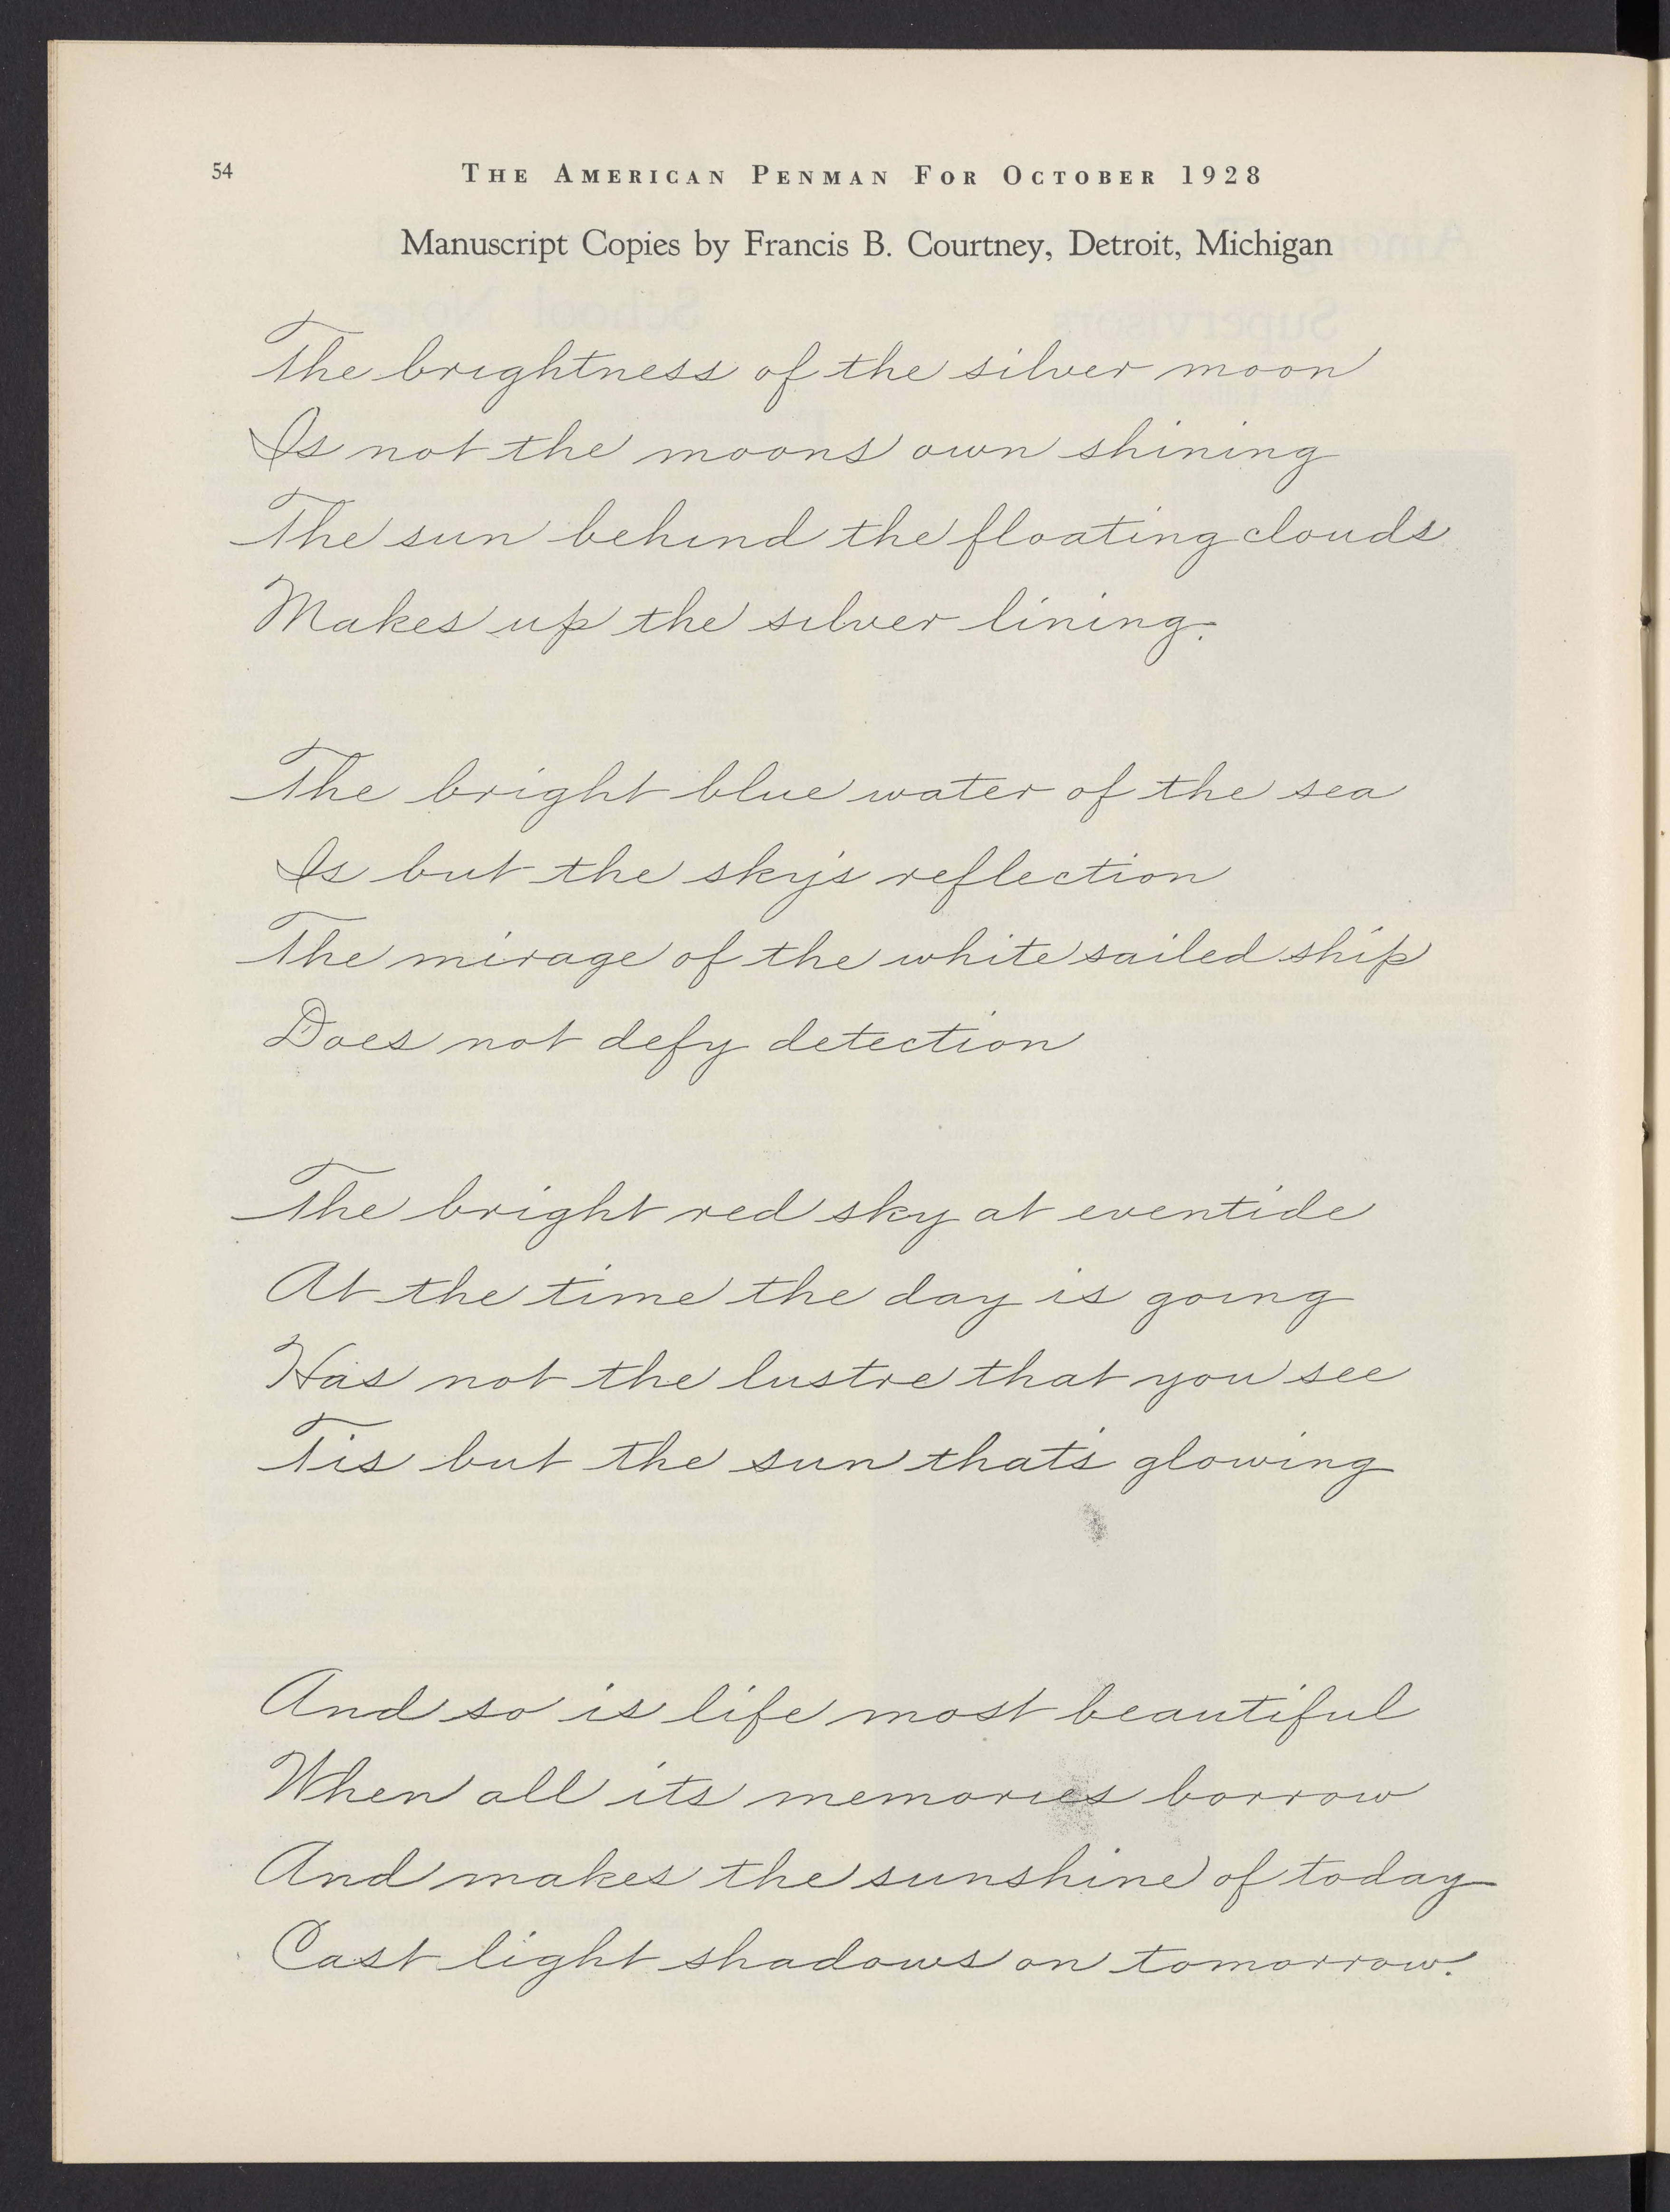 54
THE AMERICAN PENMAN FOR OCTOBER 1928
Manuscript Copies by Francis B. Courtney, Detroit, Michigan
The brightness of the silver moon
Is not the moons own shining
The sun behind the floating clouds
Makes up the silver lining.
The bright blue water of the sea
Is but the sky's reflection
The mirage of the white sailed ship
Does not defy detection
The bright red sky at eventide
At the time the day is going
Has not the lustre that you see
Tis but the sun that's glowing
And so is life most beautiful
When all its memories borrow
And makes the sunshine of today
Cast light shadows on tomorrow.